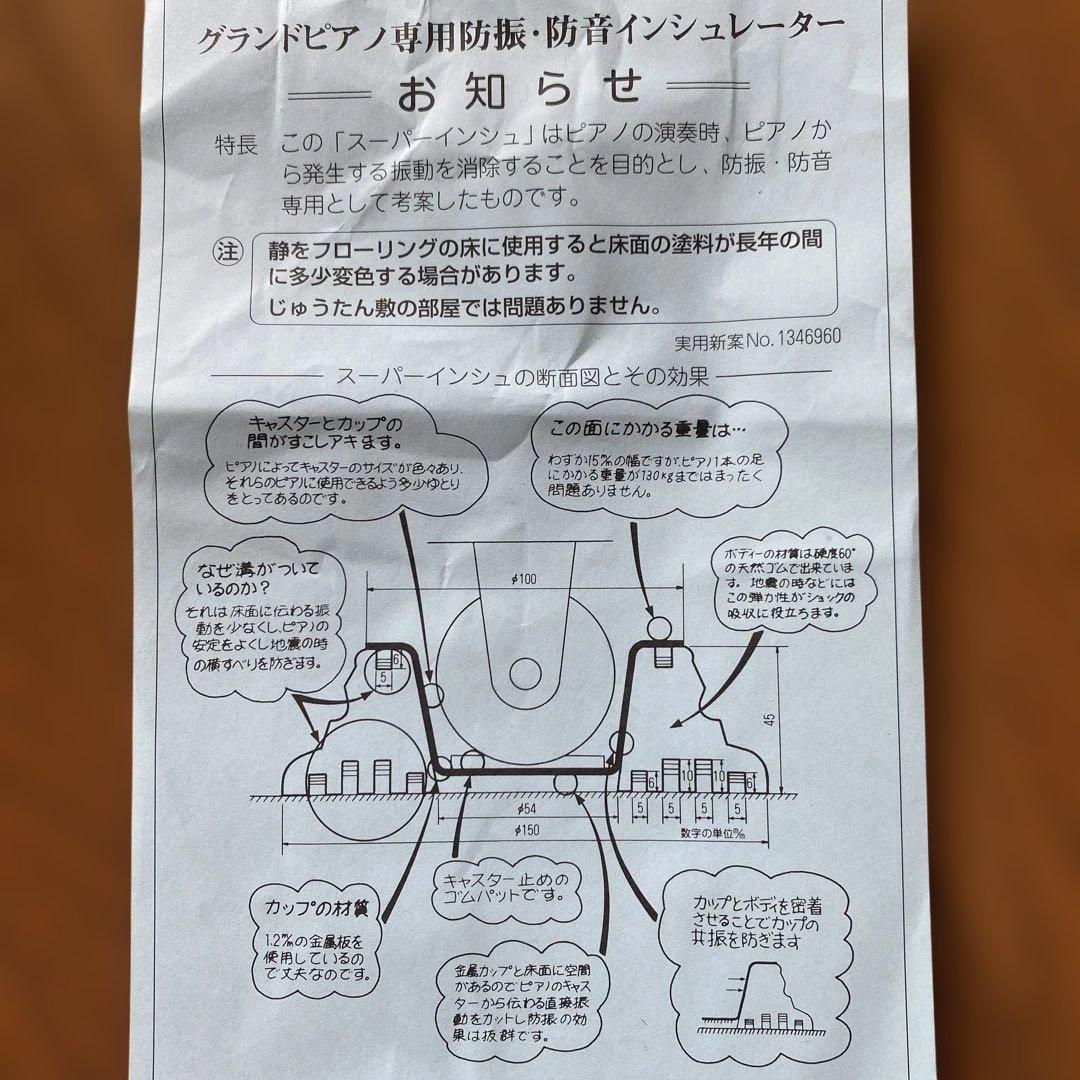 グランドピアノ専用防振・防音インシュレーター
お知らせ
特長 この「スーパーインシュ」はピアノの演奏時、ピアノか
ら発生する振動を消除することを目的とし、防振・防音
専用として考案したものです。
注 静をフローリングの床に使用すると床面の塗料が長年の間
に多少変色する場合があります。
じゅうたん敷の部屋では問題ありません。
実用新案No.1346960
スーパーインシュの断面図とその効果
キャスターとカップの
間がすこしアキます。
ピアノによってキャスターのサイズが色々あり、
それらのピアノに使用できるよう多少ゆとり
をとってあるのです。
この面にかかる重量は…
わずか15㎜の幅ですが、ピアノ1本の足
にかかる重量が130kgまではまったく
問題ありません。
なぜ溝がついて
いるのか?
それは床面に伝わる振
動を少なくし、ピアノの
安定をよくし地震の時
の横すべりを防ぎます。
ボディーの材質は硬度60°
の天然ゴムで出来ていま
す。地震の時などには
この弾力性がショックの
吸収に役立ちます。
φ100
6
5
45
6
10
10
6
5
5
5
5
φ54
φ150
数字の単位㎜
カップの材質
1.2㎜の金属板を
使用しているの
で丈夫なのです。
キャスター止めの
ゴムパットです。
金属カップと床面に空間
があるのでピアノのキャス
ターから伝わる直接振
動をカットし防振の効
果は抜群です。
カップとボディを密着
させることでカップの
共振を防ぎます